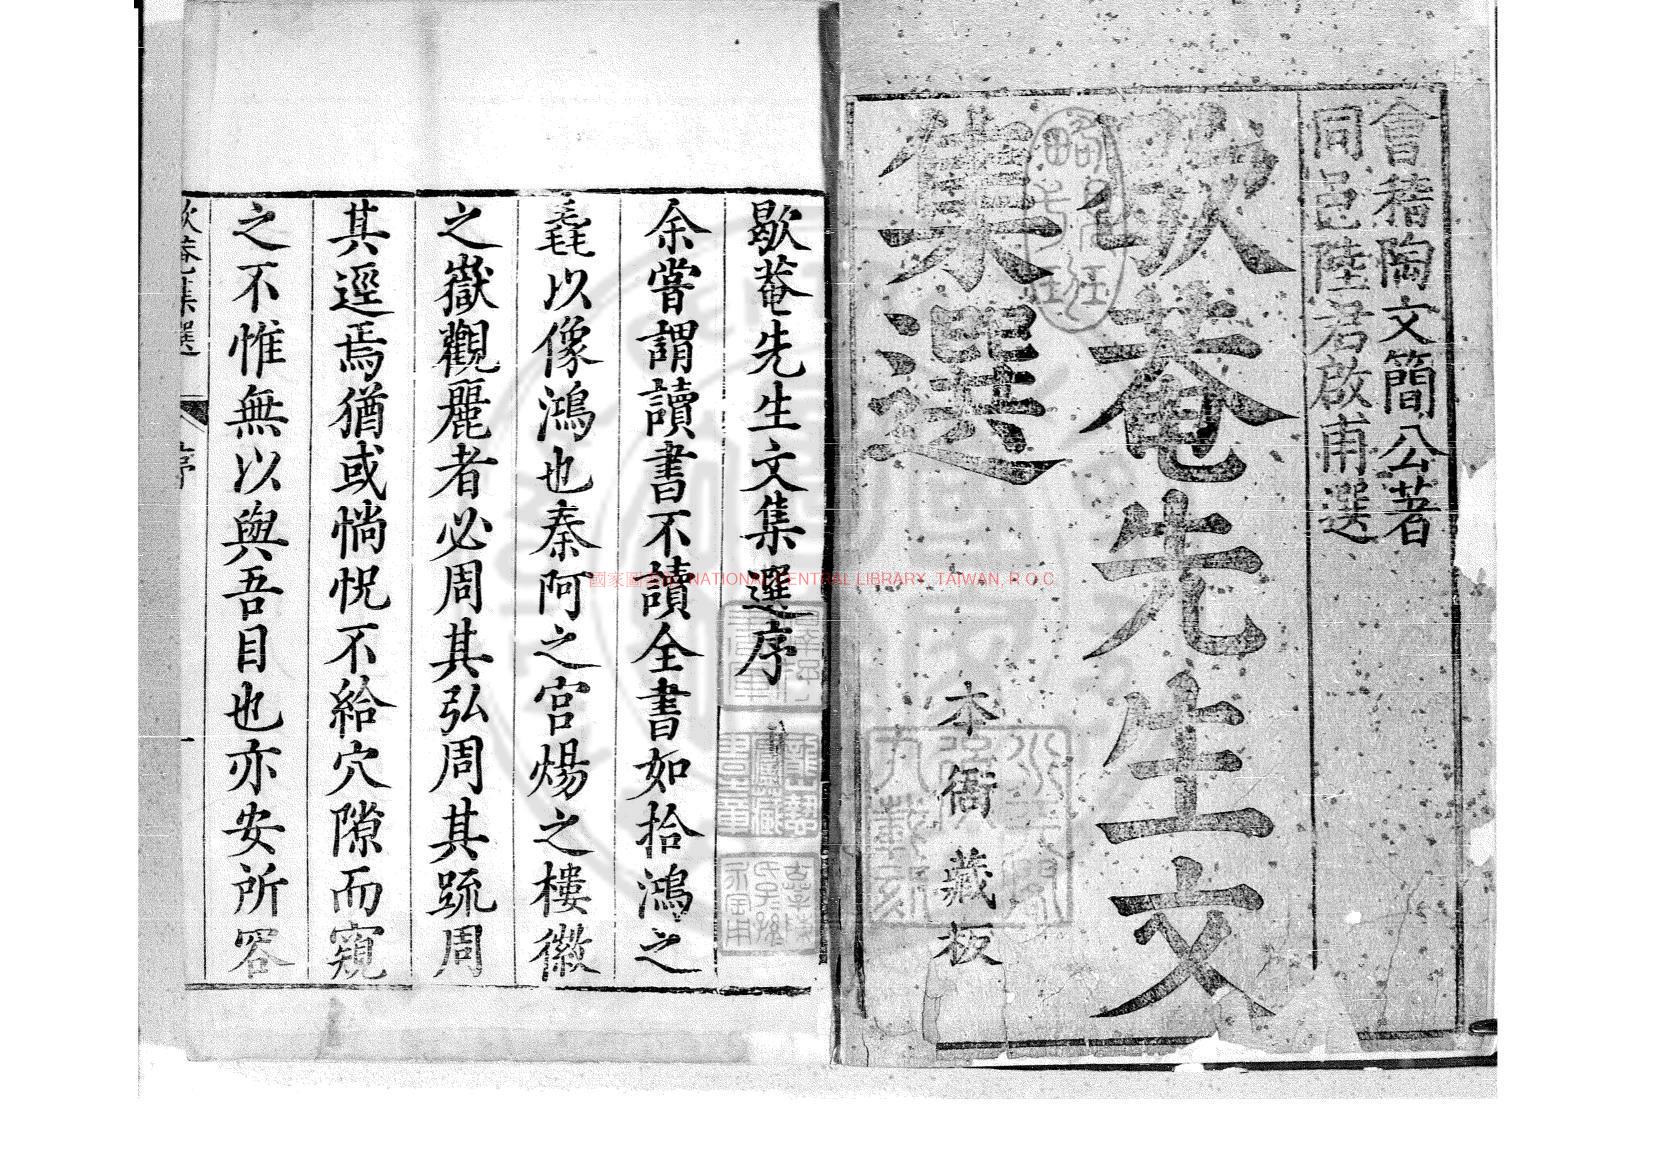 會稽陶文簡公著
同邑陸君啟甫選
歇菴先生文
集選
本衙藏板
歇菴先生文集選序
余嘗謂讀書不讀全書如拾鴻之
毳以像鴻也秦阿之宮煬之樓徽
之嶽觀麗者必周其弘周其疏周
其逕焉猶或惝怳不給穴隙而窺
之不惟無以與吾目也亦安所容
歇菴集選
序
一
國家圖書館 NATIONAL CENTRAL LIBRARY, TAIWAN, R.O.C